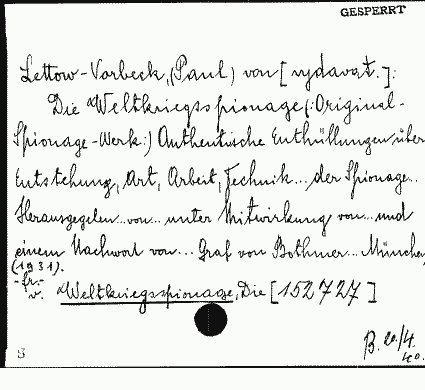 GESPERRT
Lettow-Vorbeck, (Paul) von [rydavat.]:
Die Weltkriegsspionage (:Original-
Spionage-Werk:) Authentische Enthüllungen über
Entstehung, Art, Arbeit, Technik... der Spionage...
Herausgegeben...von... unter Mitwirkung von...und
einem Nachwort von... Graf von Bothmer... München
(1931).
-fr.-
v. Weltkriegsspionage, Die [152727]
B. 20/4.
40.
S